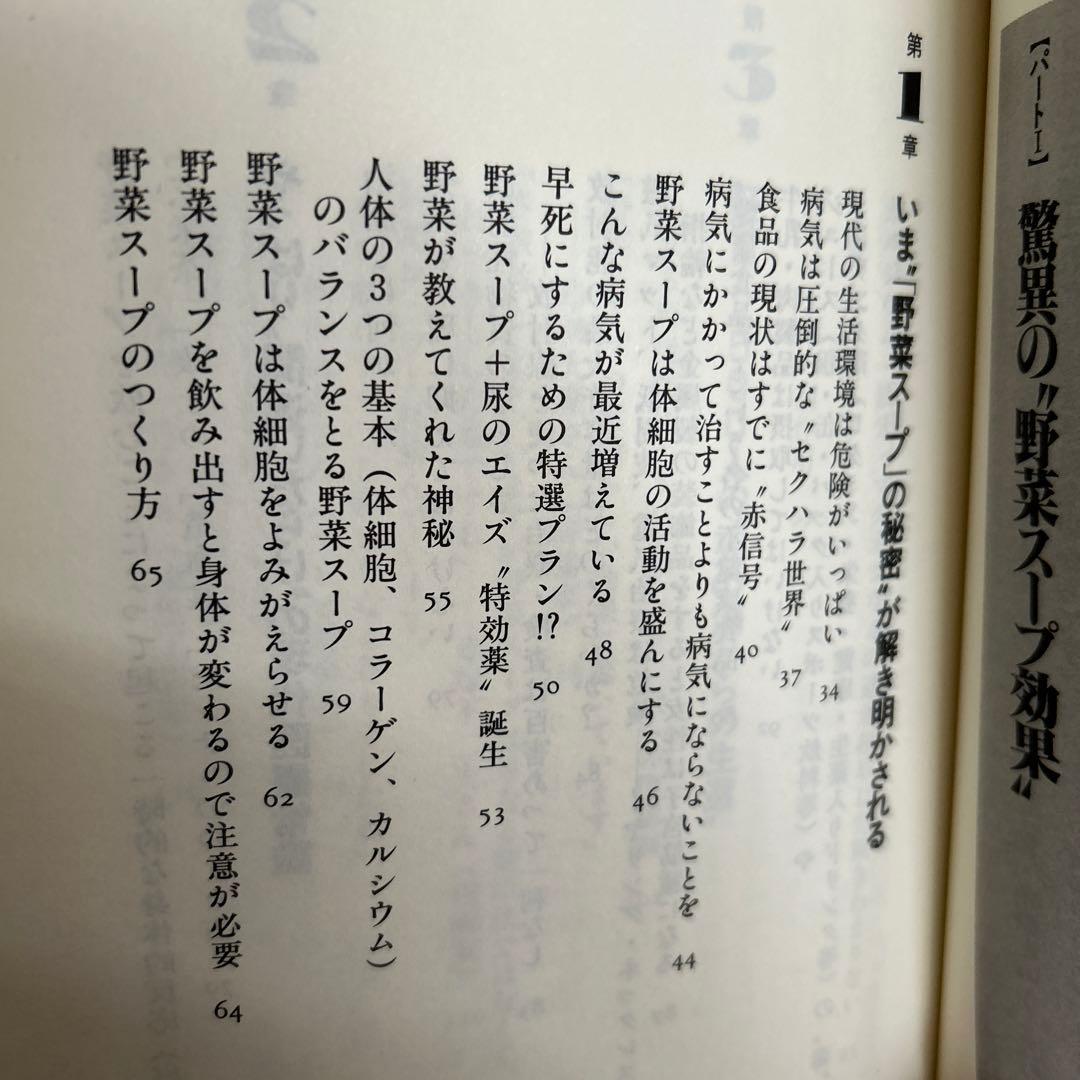 【パートⅠ】 驚異の〝野菜スープ効果〟
第1章 いま〝「野菜スープ」の秘密〟が解き明かされる
現代の生活環境は危険がいっぱい 34
病気は圧倒的な〝セクハラ世界〟 37
食品の現状はすでに〝赤信号〟 40
病気にかかって治すことよりも病気にならないことを 44
野菜スープは体細胞の活動を盛んにする 46
こんな病気が最近増えている 48
早死にするための特選プラン!? 50
野菜スープ＋尿のエイズ〝特効薬〟誕生 53
野菜が教えてくれた神秘 55
人体の3つの基本（体細胞、コラーゲン、カルシウム）
のバランスをとる野菜スープ 59
野菜スープは体細胞をよみがえらせる 62
野菜スープを飲み出すと身体が変わるので注意が必要 64
野菜スープのつくり方 65